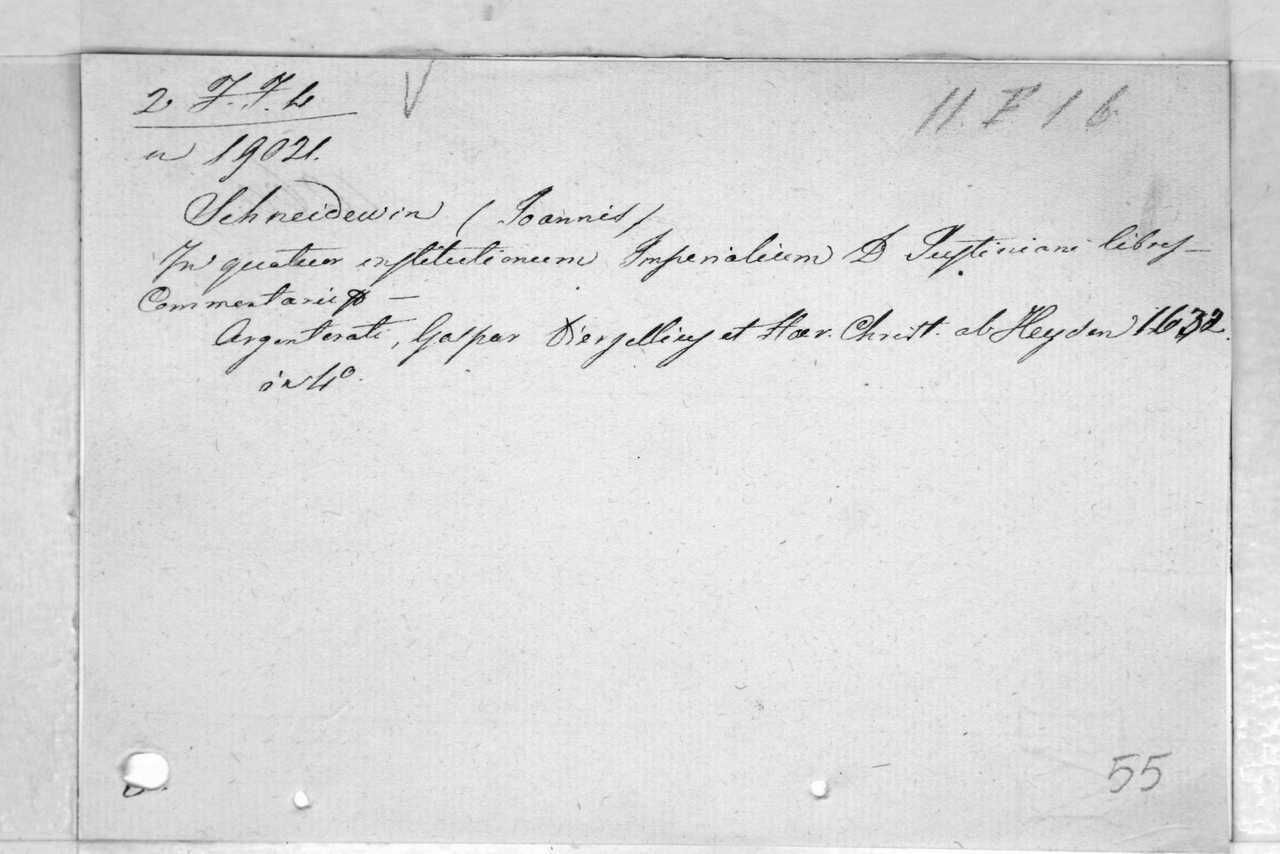 2 F. F. 4
11. F 1 b
n 19021.
Schneidewin (Joannis)
In quatuor institutionum Imperialium D Justiniani libros—
Commentarius —
Argentorati, Gaspar et Haer. Christ. ab Heyden 1632.
in 4º.
55